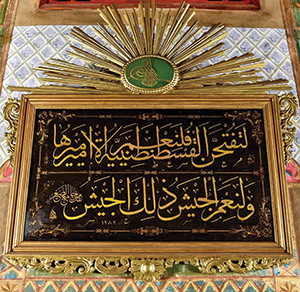 لتفتحن القسطنطينية فلنعم الامير اميرها
ولنعم الجيش ذلك الجيش